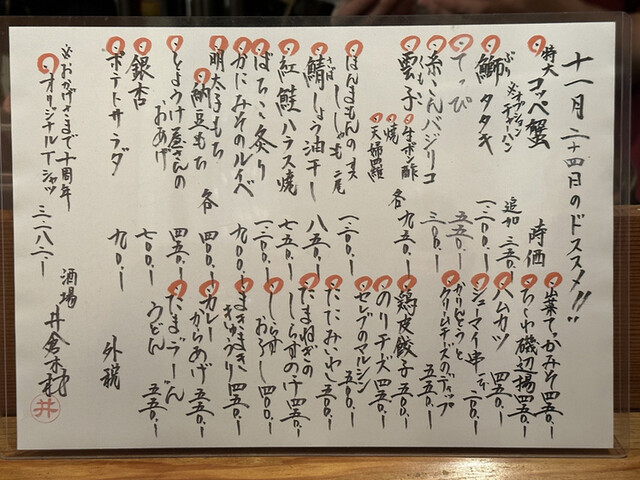 十一月二十四日のドススメ!!
特大コッペ蟹 時価
鰤タタキ 一二〇〇.-
ぶり
※オプション チャーハン 追加 三五〇.-
てっぴ 五五〇.-
糸こんバジリコ 三〇〇.-
雲子 各九五〇.-
くもこ
・生ポン酢
・焼
・天婦羅
ほんまもんのししゃも二尾 一二〇〇.-
鯖しょう油干し 八五〇.-
さば
紅鮭ハラス焼 七五〇.-
ばちこ炙り 一二〇〇.-
かにみそのルイベ 九〇〇.-
明太子もち
納豆もち 各四〇〇.-
とようけ屋さんのおあげ 四五〇.-
銀杏 七〇〇.-
ポテトサラダ 九〇〇.-
山葉てっかみそ 四五〇.-
ちくわ磯辺揚 四五〇.-
ハムカツ 四五〇.-
シューマイ串
かりんとうとクリームチーズのディップ 五五〇.-
鶏皮餃子 五〇〇.-
のりチーズ 四五〇.-
セレブのマルシン 五〇〇.-
たたみいわし 五〇〇.-
たまねぎのしらすのけ 四五〇.-
しらすおろし 四〇〇.-
カレーからあげ 五五〇.-
たまごーどん
うどん 五五〇.-
外税
※おかげさまで十周年
オリジナルTシャツ 三一八二.-
酒場 井倉木材
井